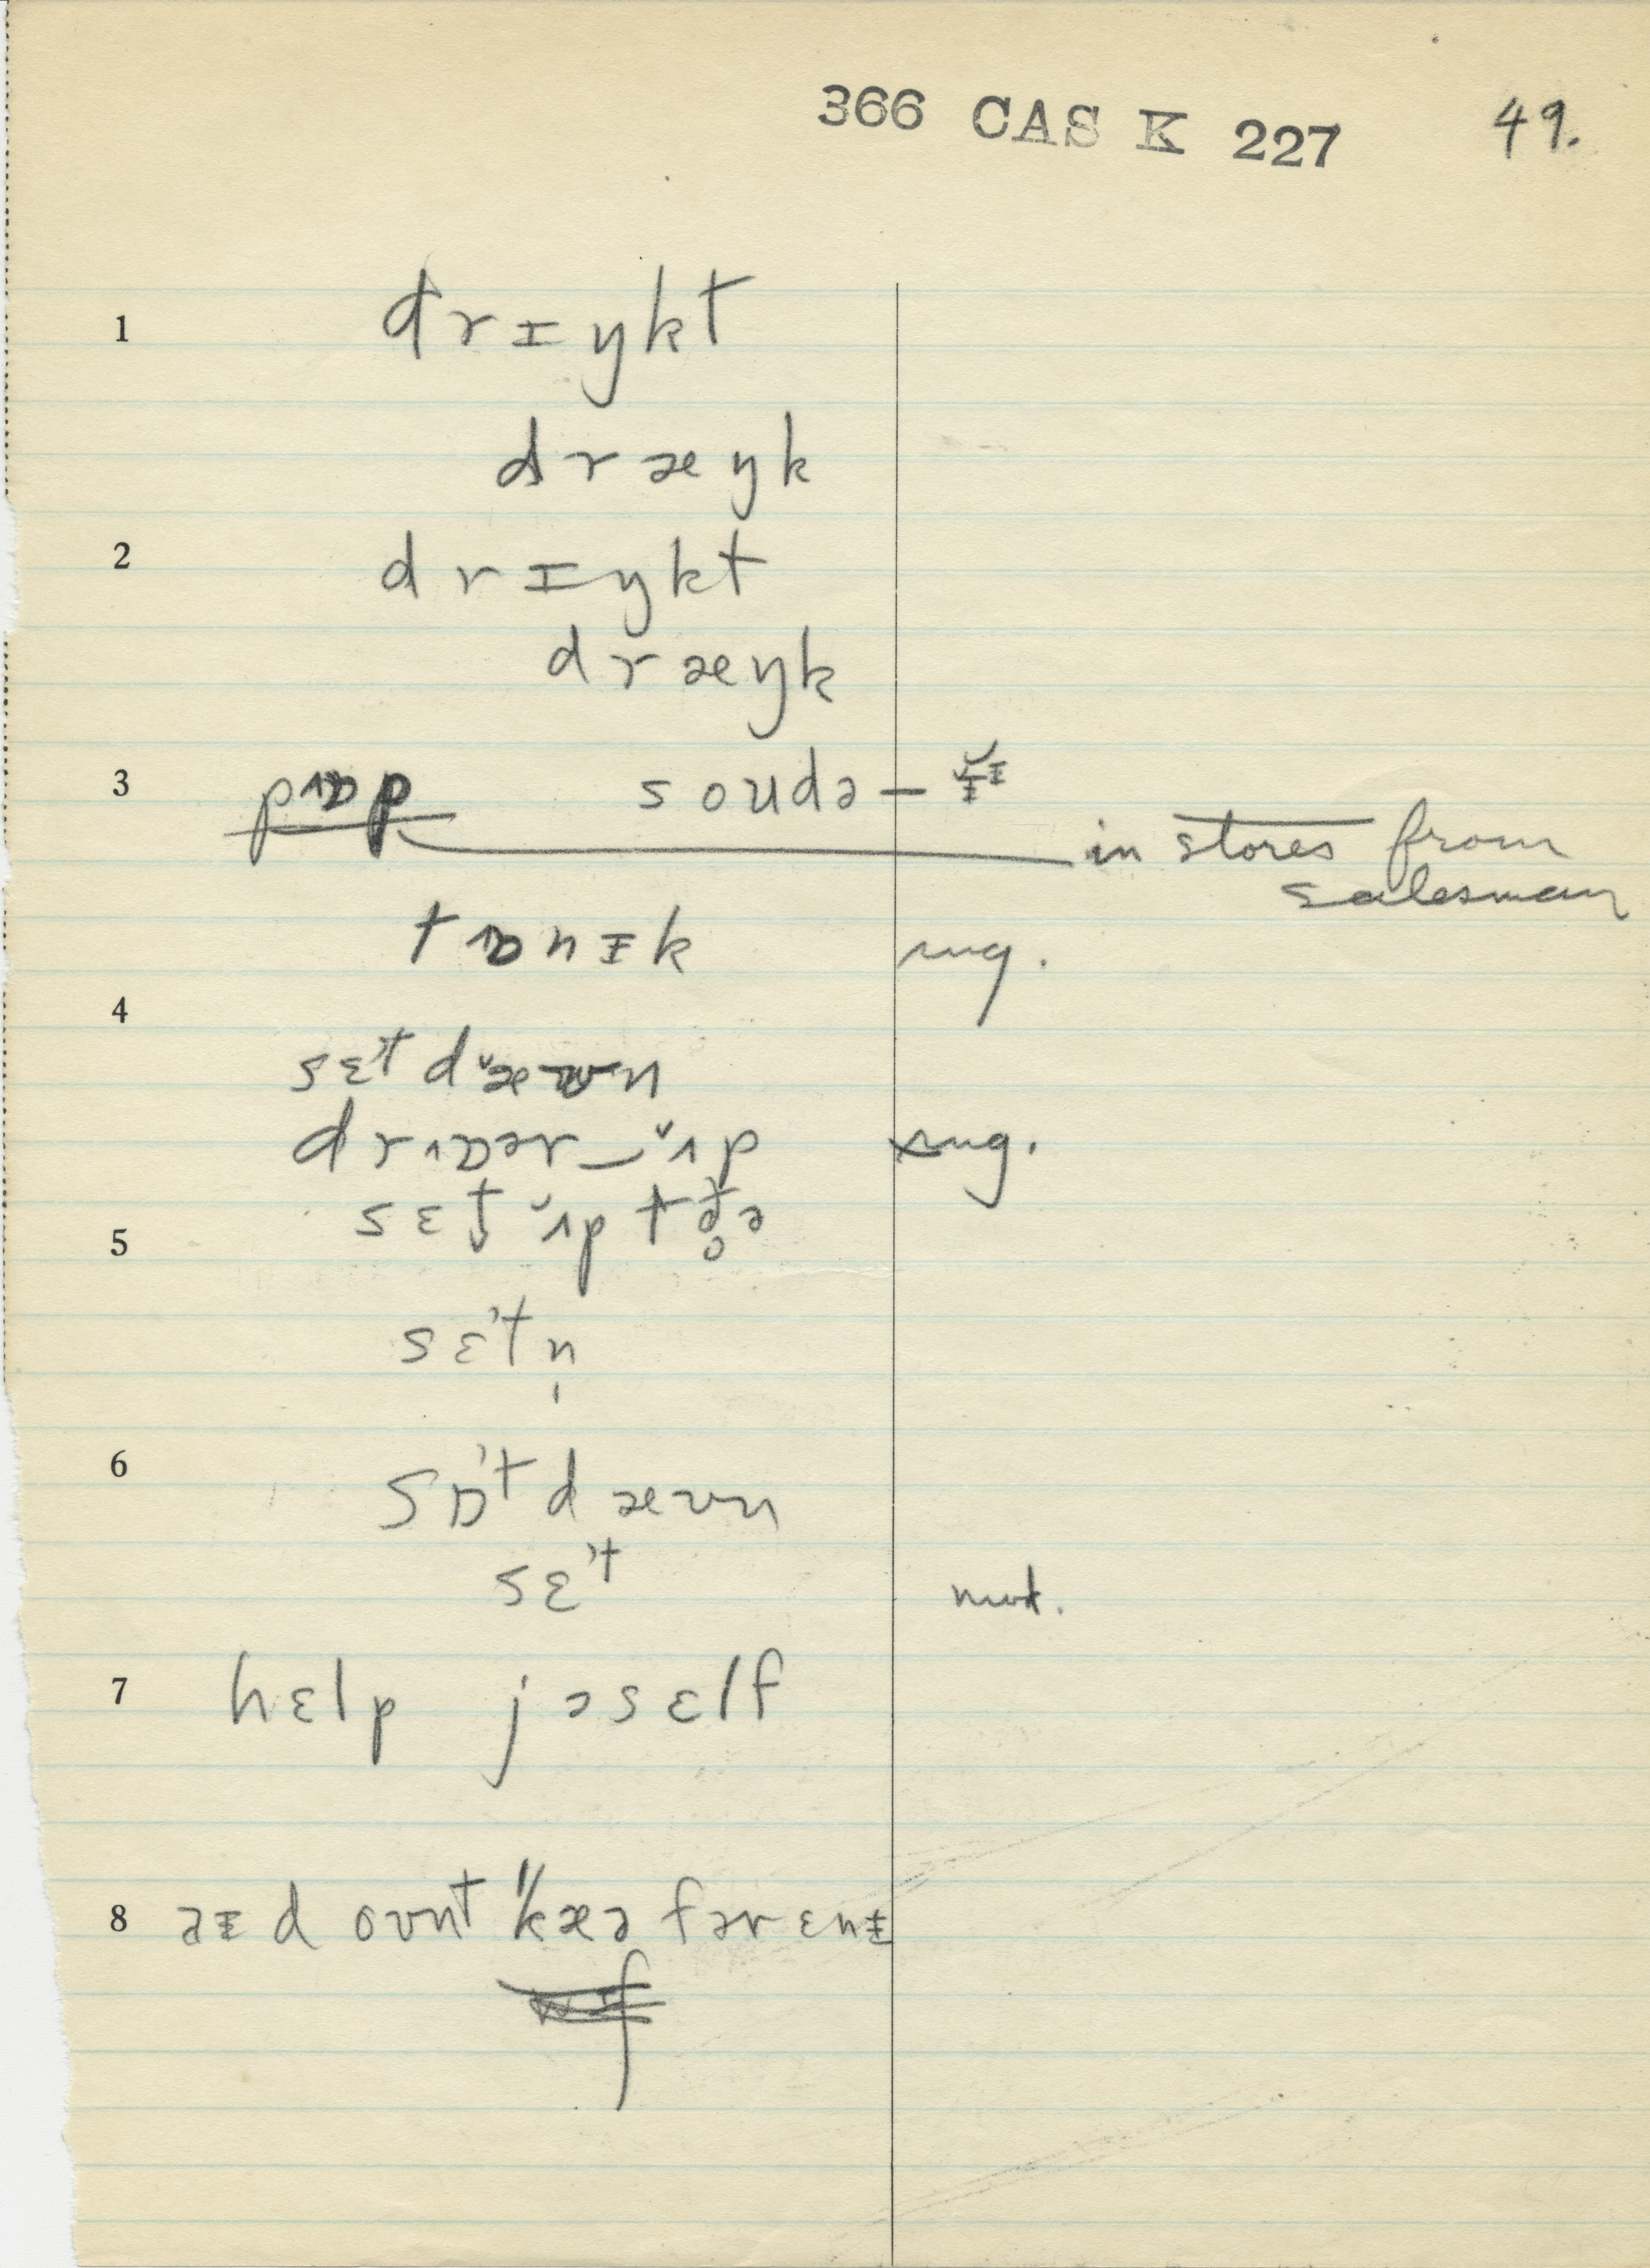 366 CAS K 227 49.
1 drɪŋkt
dræŋk
2 drɪŋkt
dræŋk
3 pɒp soudə –
in stores from
salesman
tɒnɨk sug.
4
sɛˀt dæʊn
drɒər‿ʌp sug.
sɛt ʌp tə
5
sɛˀtn̩
6 sɒˀt dæʊn
sɛˀt
7 hɛlp jəself
8 aɨd oʊnt kæə fər ɛnɨ